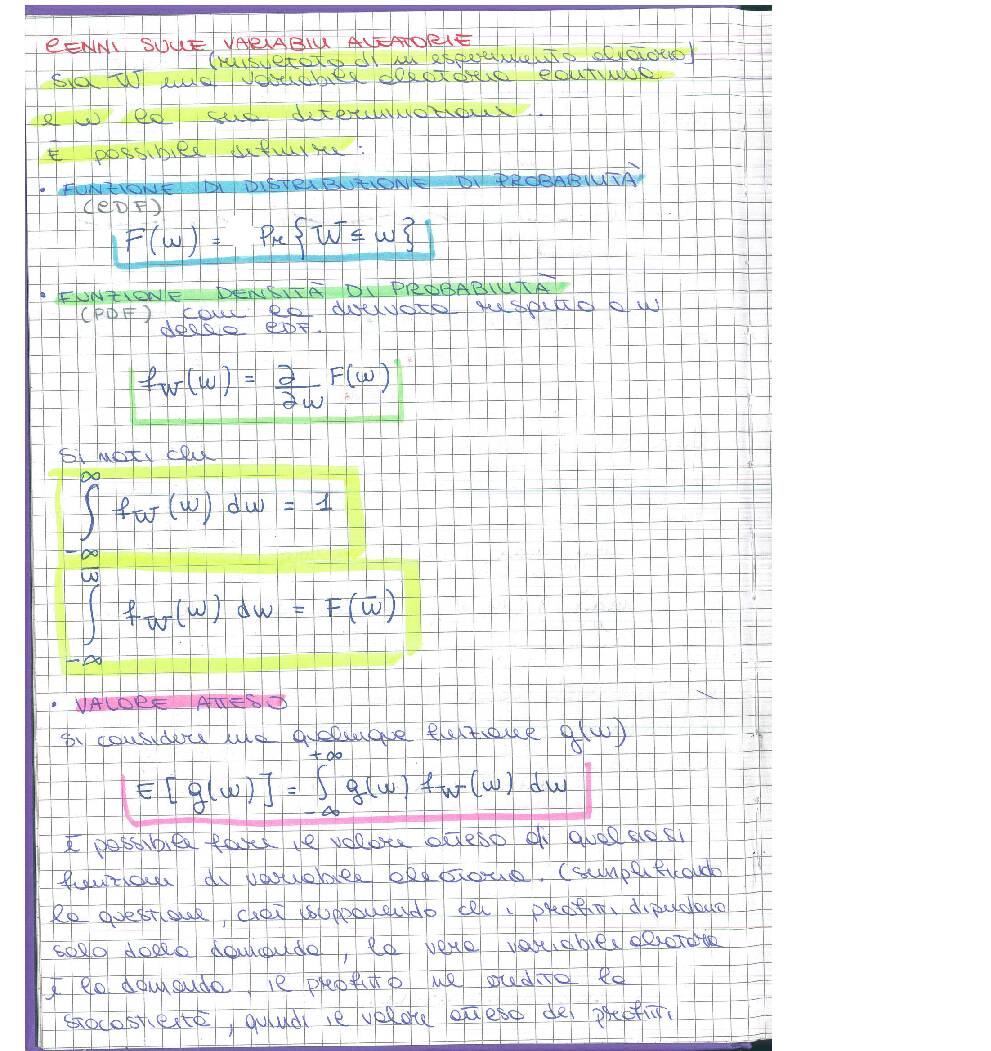 CENNI SULLE VARIABILI ALEATORIE
(risultato di un esperimento aleatorio)
Sia W una variabile aleatoria continua
e w la sua determinazione.
È possibile definire:
• FUNZIONE DI DISTRIBUZIONE DI PROBABILITÀ
(CDF)
F(w) = Pr{W ≤ w}
• FUNZIONE DENSITÀ DI PROBABILITÀ
(PDF) come la derivata rispetto a w
della CDF.
f_W(w) = ∂/∂w F(w)
Si noti che
∫_{-∞}^{∞} f_W(w) dw = 1
∫_{-∞}^{w̄} f_W(w) dw = F(w̄)
• VALORE ATTESO
Si consideri una qualunque funzione g(w)
E[g(w)] = ∫_{-∞}^{+∞} g(w) f_W(w) dw
È possibile fare il valore atteso di qualsiasi
funzione di variabile aleatoria. (semplificando
la questione, cioè supponendo che i profitti dipendano
solo dalla domanda, la vera variabile aleatoria
è la domanda, il profitto ne eredita la
stocasticità, quindi il valore atteso dei profitti